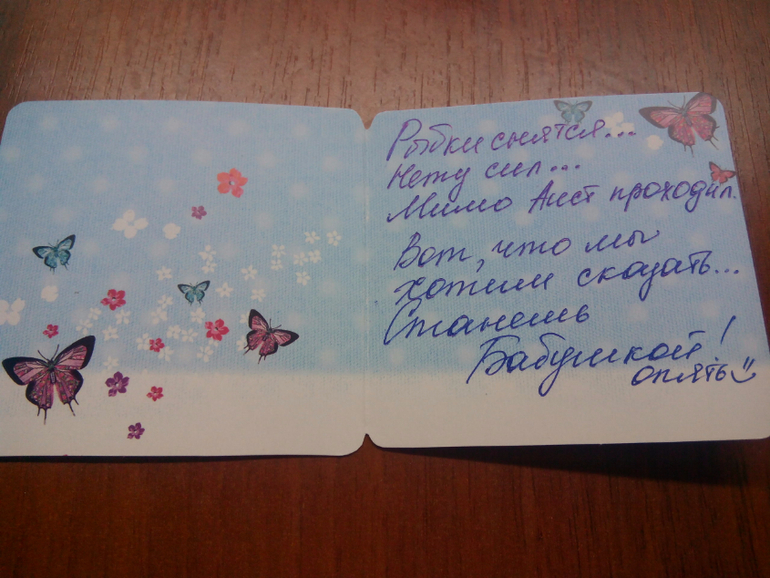 Рыбки снятся...
Нету сил...
Мимо Аист проходил.
Вот, что мы
хотим сказать...
Станешь
Бабушкой!
опять